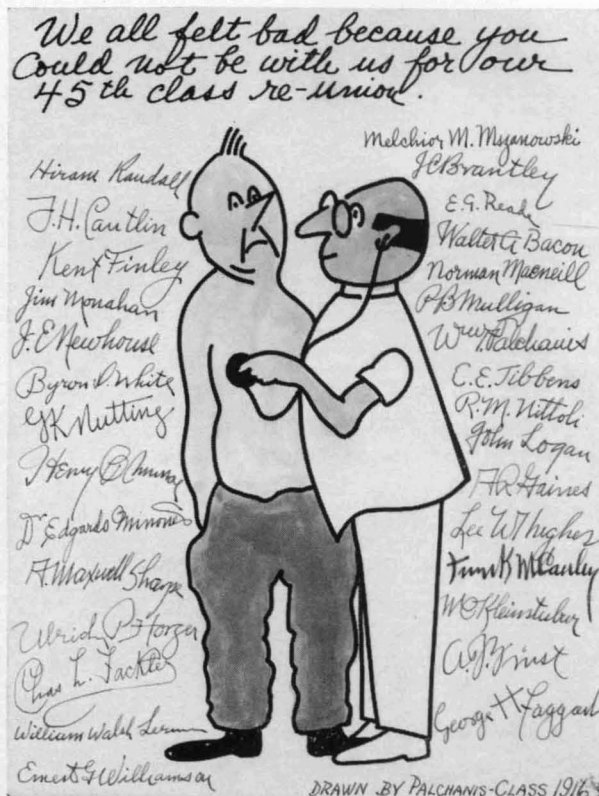 We all felt bad because you
Could not be with us for our
45th class re-union.
Hiram Randall
J.H. Cautlin
Kent Finley
Jim Monahan
J.E. Newhouse
Byron D. White
GK Nutting
Henry B
Dr Edgardo
A. Maxwell Sharpe
Ulrich P Horger
Chas L. Fackler
William Walsh
Ernest G Williamson
Melchior M. Mszanowski
JC Brantley
E.G. Reade
Walter A Bacon
Norman Macneill
P B Mulligan
Wm Palchanis
C.E. Tibbens
R.M. Nittoli
John Logan
AR Gaines
Lee W Hughes
Frank McCauley
W O Kleinstuber
A.J. Ernst
George H Faggart
DRAWN BY PALCHANIS-CLASS 1916